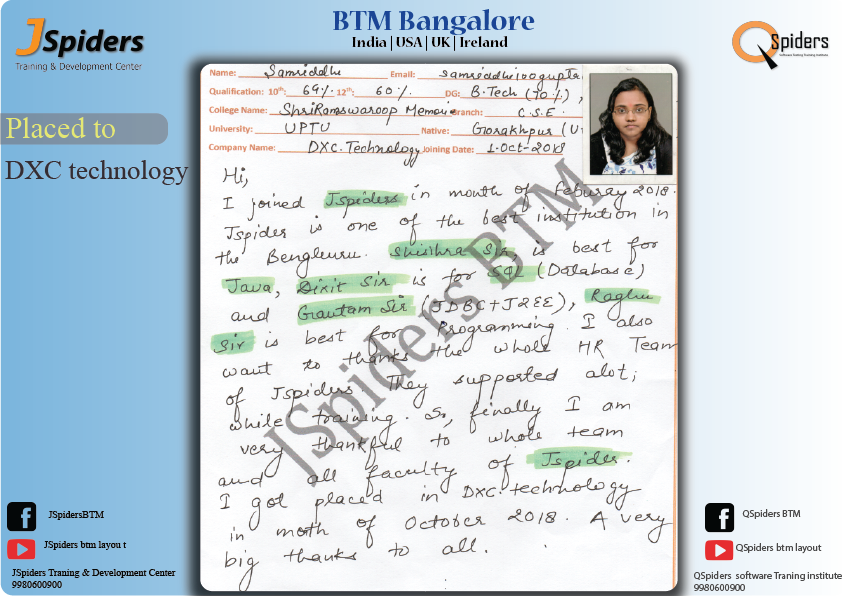 JSpiders
Training & Development Center
BTM Bangalore
India | USA | UK | Ireland
QSpiders
Software Training Training Institute
Placed to
DXC technology
Name: Samriddhi Email: samriddhi100gupta
Qualification: 10th: 69% 12th: 60% DG: B.Tech (70%),
College Name: ShriRamswaroop Memorio Branch: C.S.E.
University: UPTU Native: Gorakhpur (U
Company Name: DXC.Technology Joining Date: 1-Oct-2018
Hi,
I joined Jspiders in month of Feburay 2018.
Jspider is one of the best institution in
the Bengleuru. Shishra Sir, is best for
Java, Dixit Sir is for SQL (Database)
and Grautam Sir (JDBC+J2EE), Raghu
Sir is best for Programming. I also
want to thanks the whole HR Team
of Jspiders. They supported alot;
while training. So, finally I am
very thankful to whole team
and all faculty of Jspider.
I got placed in DXC.technology
in moth of October 2018. A very
big thanks to all.
JSpiders BTM
JSpidersBTM
JSpiders btm layou t
JSpiders Traning & Development Center
9980600900
QSpiders BTM
QSpiders btm layout
QSpiders software Traning institute
9980600900